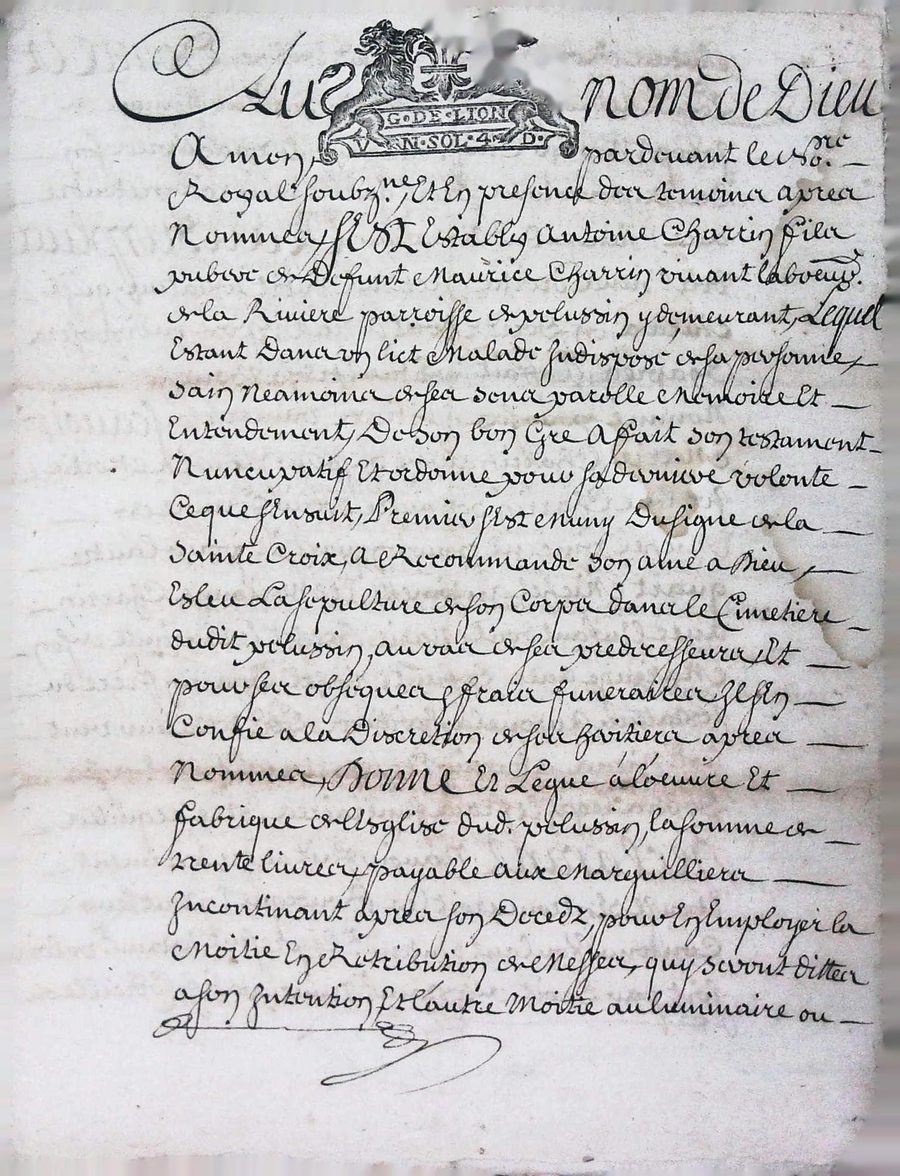 Au nom de Dieu
G. DE. LION
VN. SOL. 4. D.
Amen, pardevant le No.re
Royal soubz.ne, Et En presence des temoins apres
Nommes, sEST Establý Antoine Charrin fils
pubere de Defunt Maurice Charrin vivant laboeur.
de la Riviere parroisse de pelussin y demeurant, Lequel
Estant Dans vn lict Malade Indisposé de sa personne,
sain Neamoins de ses sens parolle Memoire Et
Entendement, De son bon Gre A fait son testament
Nuncupatif Et ordonne pour sa derniere volonte
Ceque sEnsuit, Premier sEst Muny Du signe de la
sainte Croix, A Recommande son ame a Dieu,
Esleu La sepulture de son Corps dans le Cimetiere
dudit pelussin, au vas de ses predecesseurs, Et
pour ses obseques & frais funeraires Il sEn
Confie a la Discretion de ses hæitiers apres
Nommes, Donne Et Legue à lœuure Et
fabrique de lEsglise dud. pelussin, la somme de
trente livres, payable aux Marguilliers
Incontinant apres son Decedz, pour En Employer la
Moitie En Retribution de Messes, quy seront dittes
a son Intention Et lautre Moitie au luminaire ou